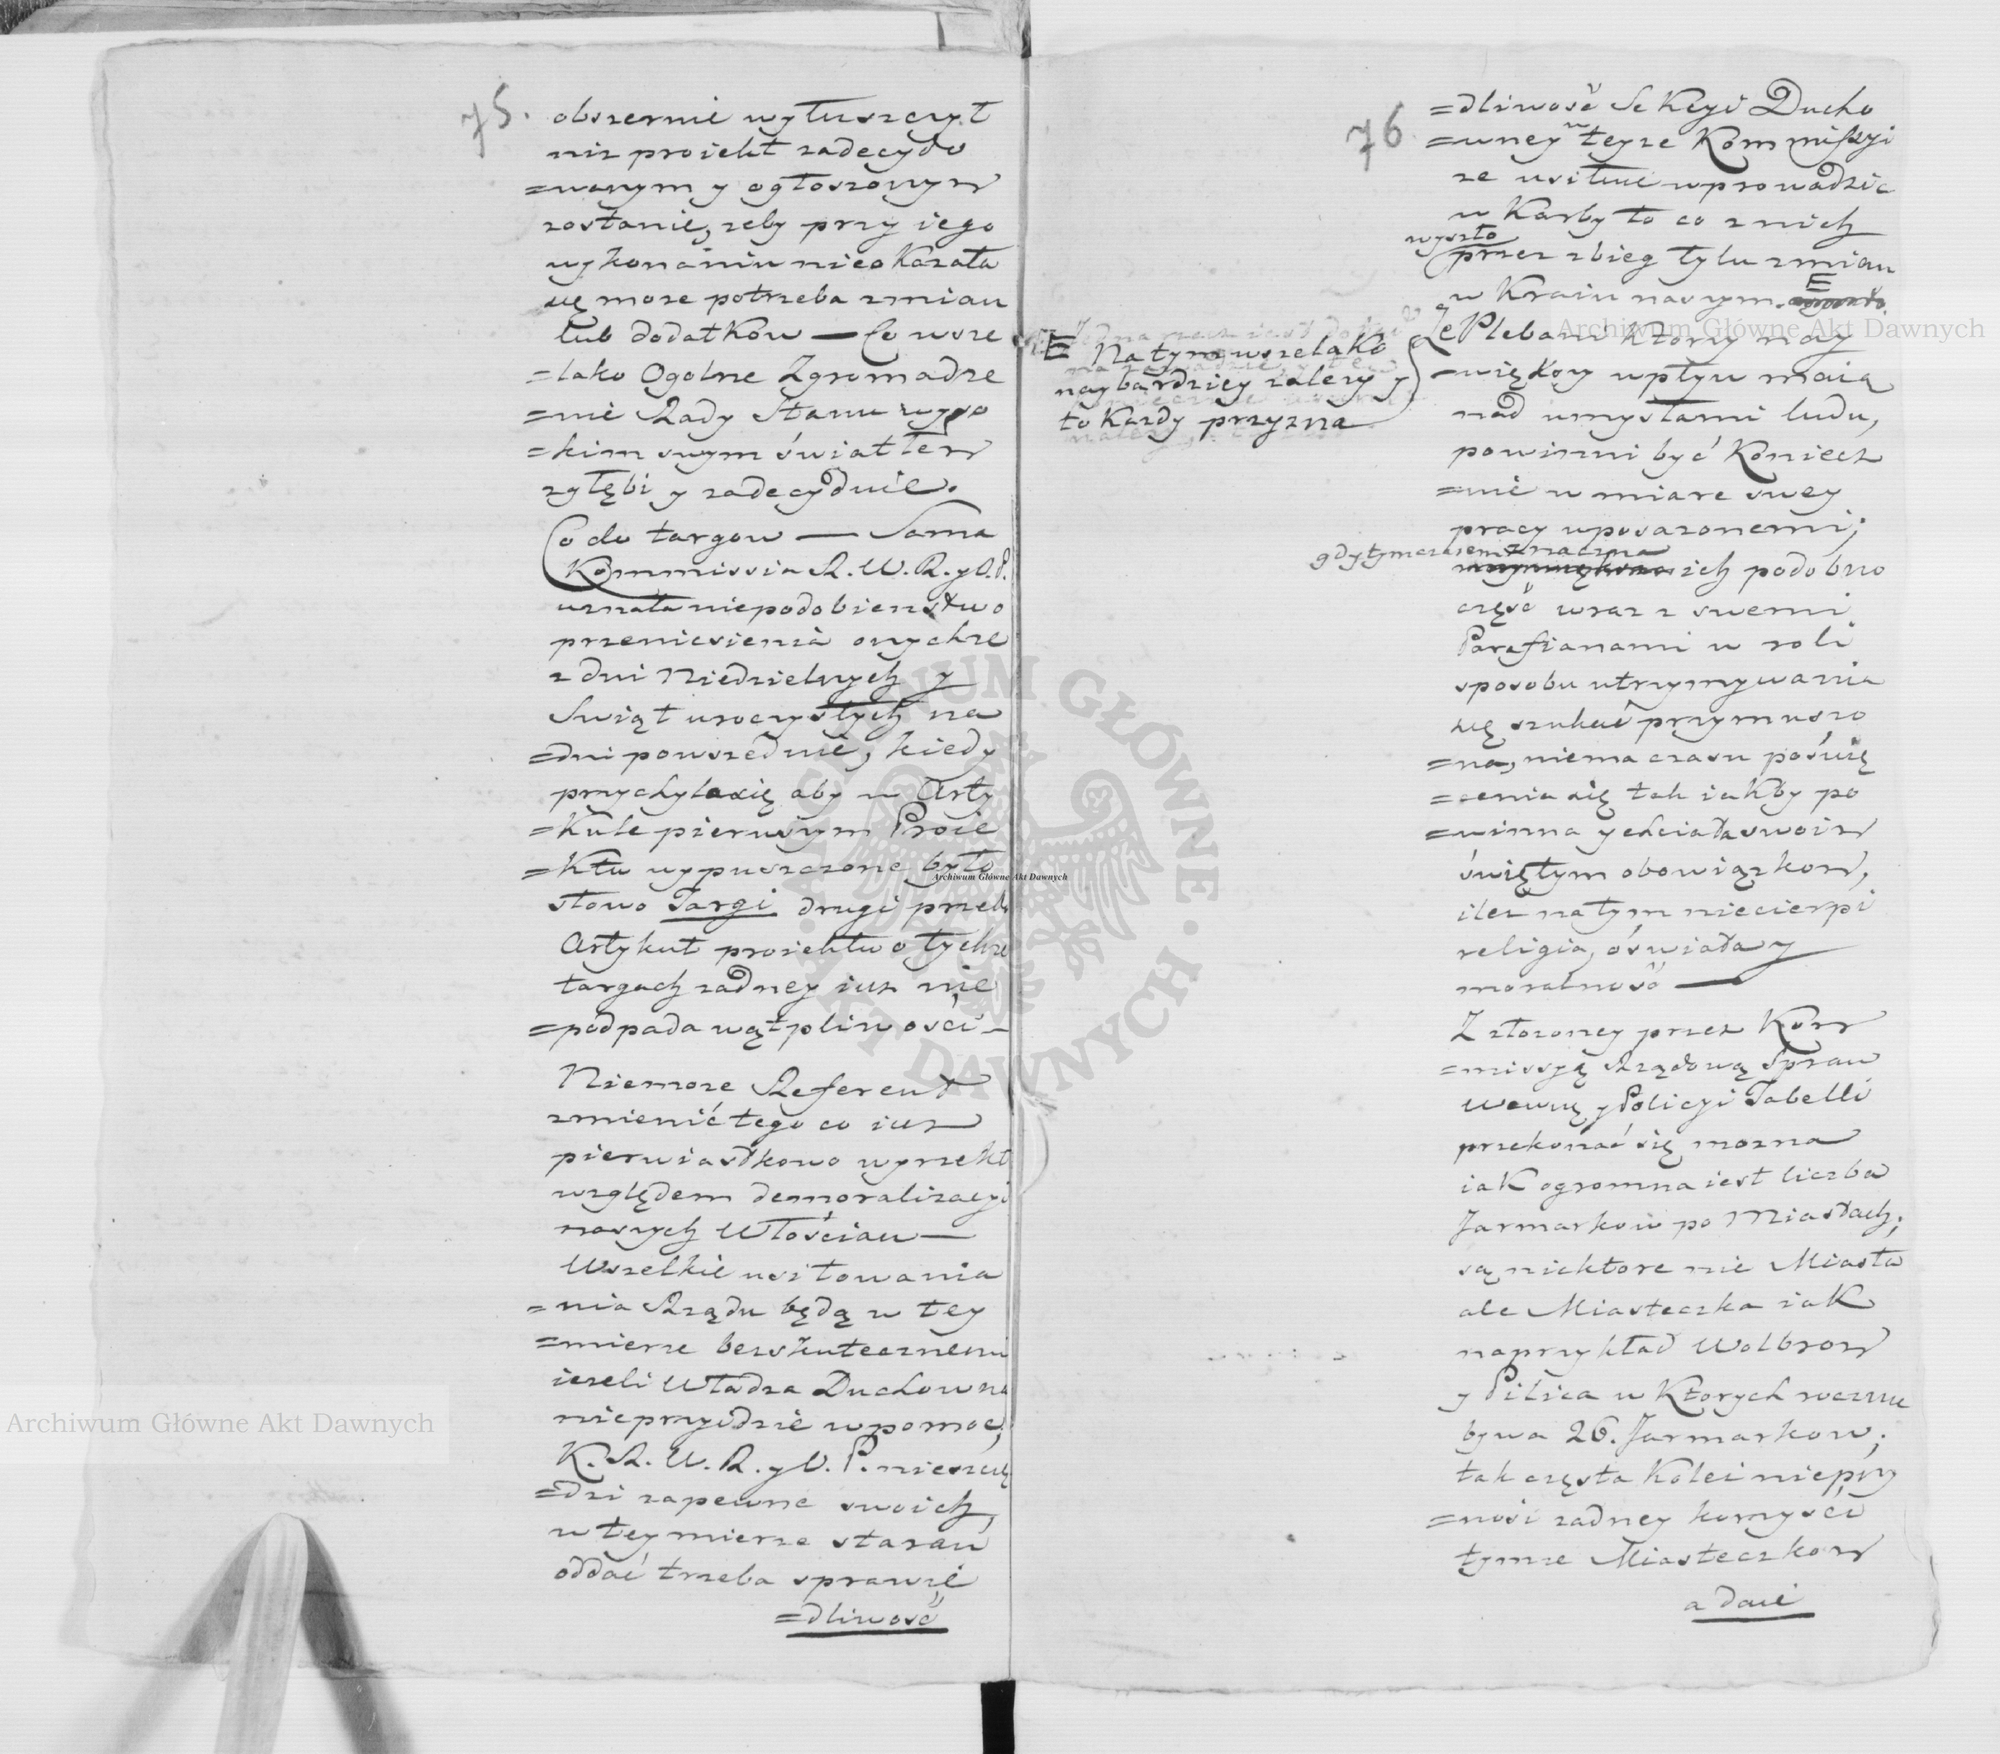 75.
obszernie wytuszczył
niz proiekt zadecydo
=wanym y ogłoszonym
zostanie, zeby przy iego
wykonaniu nieokazała
się moze potrzeba zmian
lub dodatkow — Co wsze
=lako Ogolne Zgromadze
=nie Rady Stanu wyso
=kim swym światłem
zgłębi y zadecyduie.
Co do targow — Sama
Kommissia R. W. R. y O. P.
uznała niepodobienstwo
przeniesienia onychze
z dni Niedzielnych y
Swiąt uroczystych na
=dni powszednie, kiedy
przychyla się aby w Arty
=kule pierwszym Proie
=ktu wypuszczone było
słowo Targi drugi przeto
Artykuł proiektu o tychze
targach zadney iuz nie
=podpada wątpliwości —
Niemoze Referent
zmienić tego co iuz
pierwiastkowo wyrzekł
względem demoralizacyi
naszych Włościan —
Wszelkie usiłowania
=nia Rządu będą w tey
=mierze bezskutecznemi
iezeli Władza Duchowna
nieprzyidzie w pomoc,
K. R. W. R. y O. P. nieszczę
=dzi zapewne swoich,
w tey mierze staran
oddać trzeba sprawie
=dliwość
76
=dliwość Sekcyi Ducho
=wney w teyze Kommissyi
ze usiłuie wprowadzic
w Karby to co z nich
wyszło
przez zbieg tylu zmian
w Kraiu naszym. E
E Na tym wszelako
naybardziey zalezy y
to Kazdy przyzna
Ze Plebani Ktorzy nay
=większy wpływ maią
nad umysłami ludu,
powinni być Koniecz
=nie w miare swey
pracy uposazonemi;
gdy tymczasem znaczna
ich podobno
część wraz z swemi
Parafianami w roli
sposobu utrzymywania
się szukać przymuszo
=na, niema czasu poświę
=cenia się tak iakby po
=winna y chciała swoim
świętym obowiązkom,
ilez na tym niecierpi
religia, oświata y
moralność —
Z złozoney przez Kom
=missyą Rządową Spraw
Wewnę. y Policyi Tabelli
przekonać się mozna
iak ogromna iest liczba
Jarmarkow po Miastach;
są niektore nie Miasta
ale Miasteczka iak
naprzykład Wolbrom
y Pilica w Ktorych rocznie
bywa 26. Jarmarkow;
tak częsta Kolei nieprzy
=nosi zadney korzyści
tymze Miasteczkom
a daie
Archiwum Główne Akt Dawnych
Archiwum Główne Akt Dawnych
Archiwum Główne Akt Dawnych
ARCHIWUM GŁÓWNE · AKT DAWNYCH ·